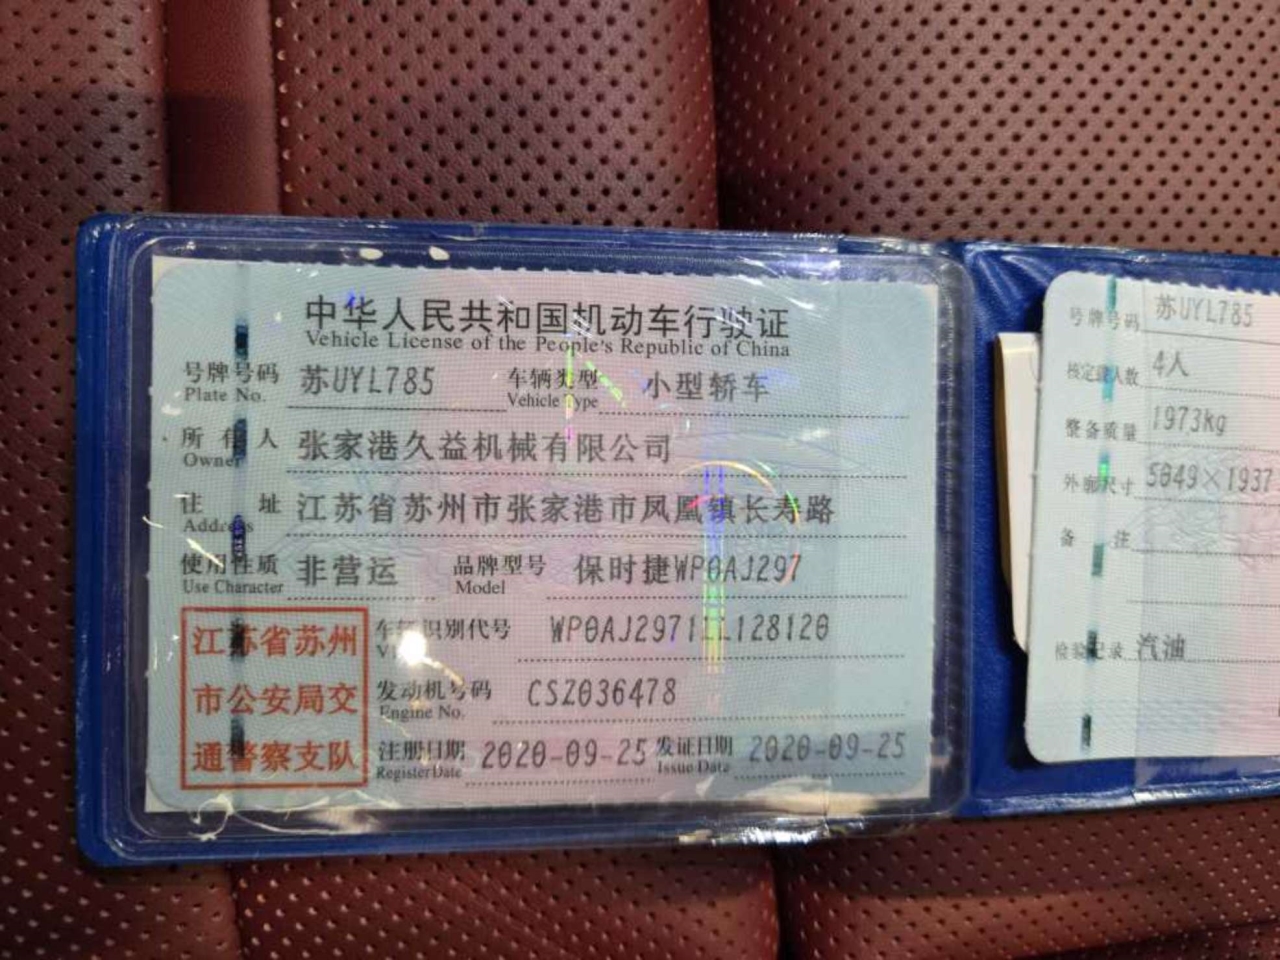 中华人民共和国机动车行驶证
Vehicle License of the People's Republic of China
号牌号码 苏UYL785 车辆类型 小型轿车
Plate No. Vehicle Type
所有人 张家港久益机械有限公司
Owner
住址 江苏省苏州市张家港市凤凰镇长寿路
Address
使用性质 非营运 品牌型号 保时捷WP0AJ297
Use Character Model
江苏省苏州
市公安局交
通警察支队
车辆识别代号
发动机号码 CSZ036478
Engine No.
注册日期 2020-09-25 发证日期 2020-09-25
Register Date Issue Date
号牌号码 苏UYL785
核定载人数 4人
整备质量 1973kg
外廓尺寸 5049×1937
备注
检验记录 汽油